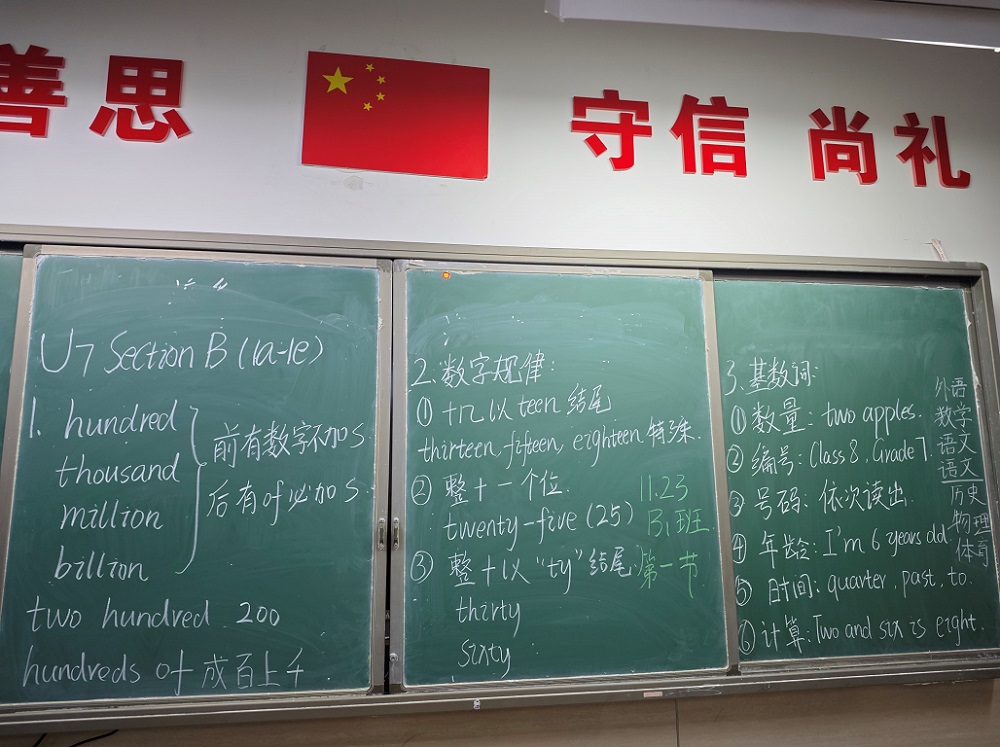 善思
守信
尚礼
U7 Section B (1a-1e)
1. hundred
thousand
million
billion
前有数字不加s
后有of必加s.
two hundred 200
hundreds of 成百上千
2.数字规律:
① 十几以teen结尾
thirteen, fifteen, eighteen 特殊.
② 整十一个位.
twenty-five (25)
③ 整十以“ty”结尾.
thirty
sixty
11.23
B1班
第一节
3.基数词:
①数量: two apples.
②编号: Class 8, Grade 7
③号码: 依次读出.
④年龄: I'm 6 years old.
⑤时间: quarter, past, to.
⑥计算: Two and six is eight.
外语
数学
语文
语文
历史
物理
体育